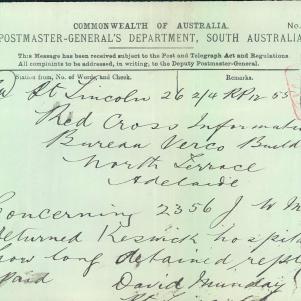 COMMONWEALTH OF AUSTRALIA. No.
POSTMASTER-GENERAL'S DEPARTMENT, SOUTH AUSTRALIA
This Message has been received subject to the Post and Telegraph Act and Regulations.
All complaints to be addressed, in writing, to the Deputy Postmaster-General.
Station from, No. of Words, and Check. Remarks.
Pt Lincoln 26 2/4 RP 12.55
Red Cross Informatio
Bureau Verco Build
North Terrace
Adelaide
Concerning 2356 J W M
returned Keswick hospital
how long detained reply
paid David Munday
Pt Lincoln